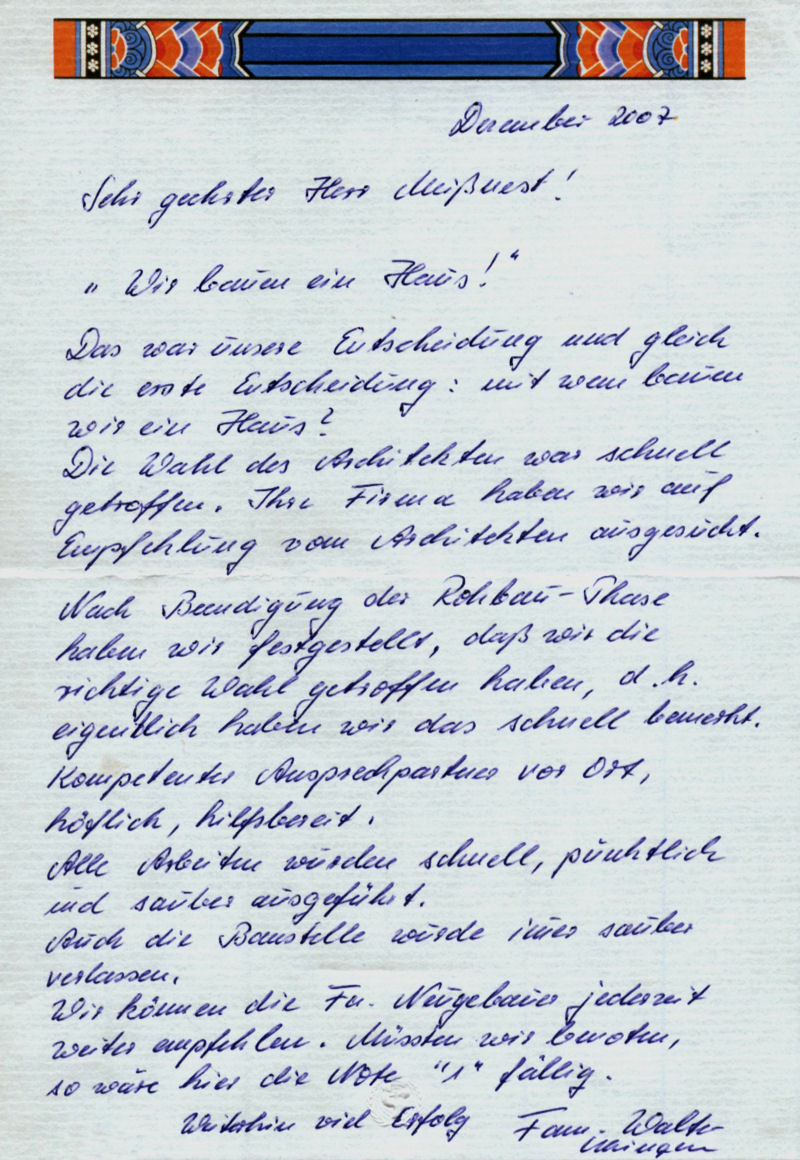 Dezember 2007
Sehr geehrter Herr Meißnest!
„Wir bauen ein Haus!"
Das war unsere Entscheidung und gleich
die erste Entscheidung: mit wem bauen
wir ein Haus?
Die Wahl des Architekten war schnell
getroffen. Ihre Firma haben wir auf
Empfehlung vom Architekten ausgesucht.
Nach Beendigung der Rohbau-Phase
haben wir festgestellt, daß wir die
richtige Wahl getroffen haben, d.h.
eigentlich haben wir das schnell bemerkt.
Kompetenter Ansprechpartner vor Ort,
höflich, hilfsbereit.
Alle Arbeiten wurden schnell, pünktlich
und sauber ausgeführt.
Auch die Baustelle wurde immer sauber
verlassen.
Wir können die Fa. Neugebauer jederzeit
weiter empfehlen. Müssten wir benoten,
so wäre hier die Note "1" fällig.
Weiterhin viel Erfolg Fam. Walter